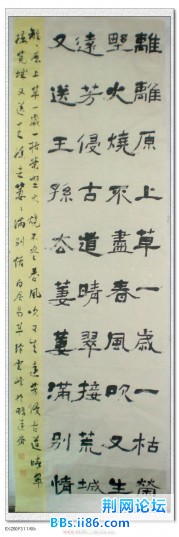 離離原上草一歲一枯榮
野火燒不盡春風吹又生
遠芳侵古道晴翠接荒城
又送王孫去萋萋滿別情
離離原上草一歲一枯榮野火燒不盡春風吹又生遠芳侵古道晴翠
接荒城又送王孫去萋萋滿別情白居易草
荆网论坛
BBs.ii86.com